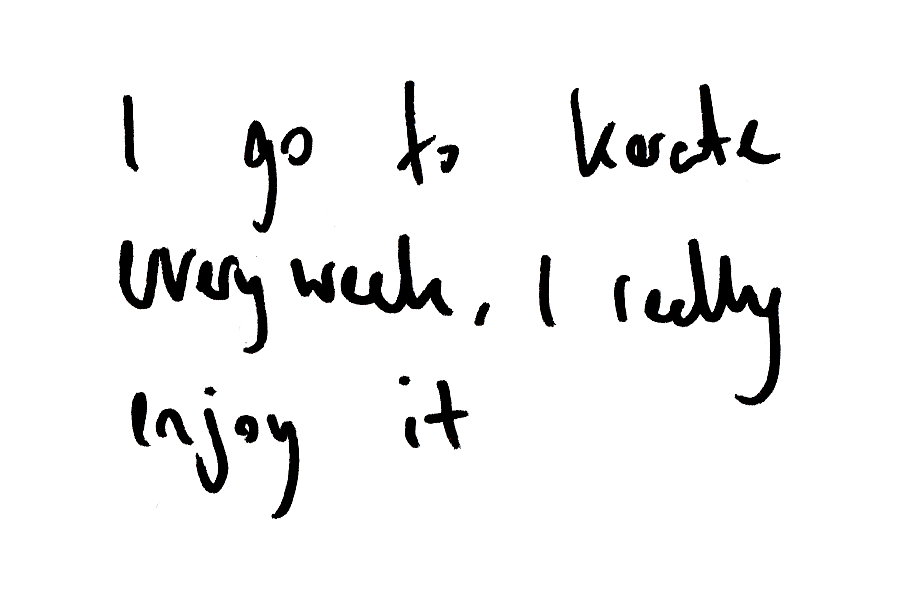 I go to karate
every week, I really
enjoy it